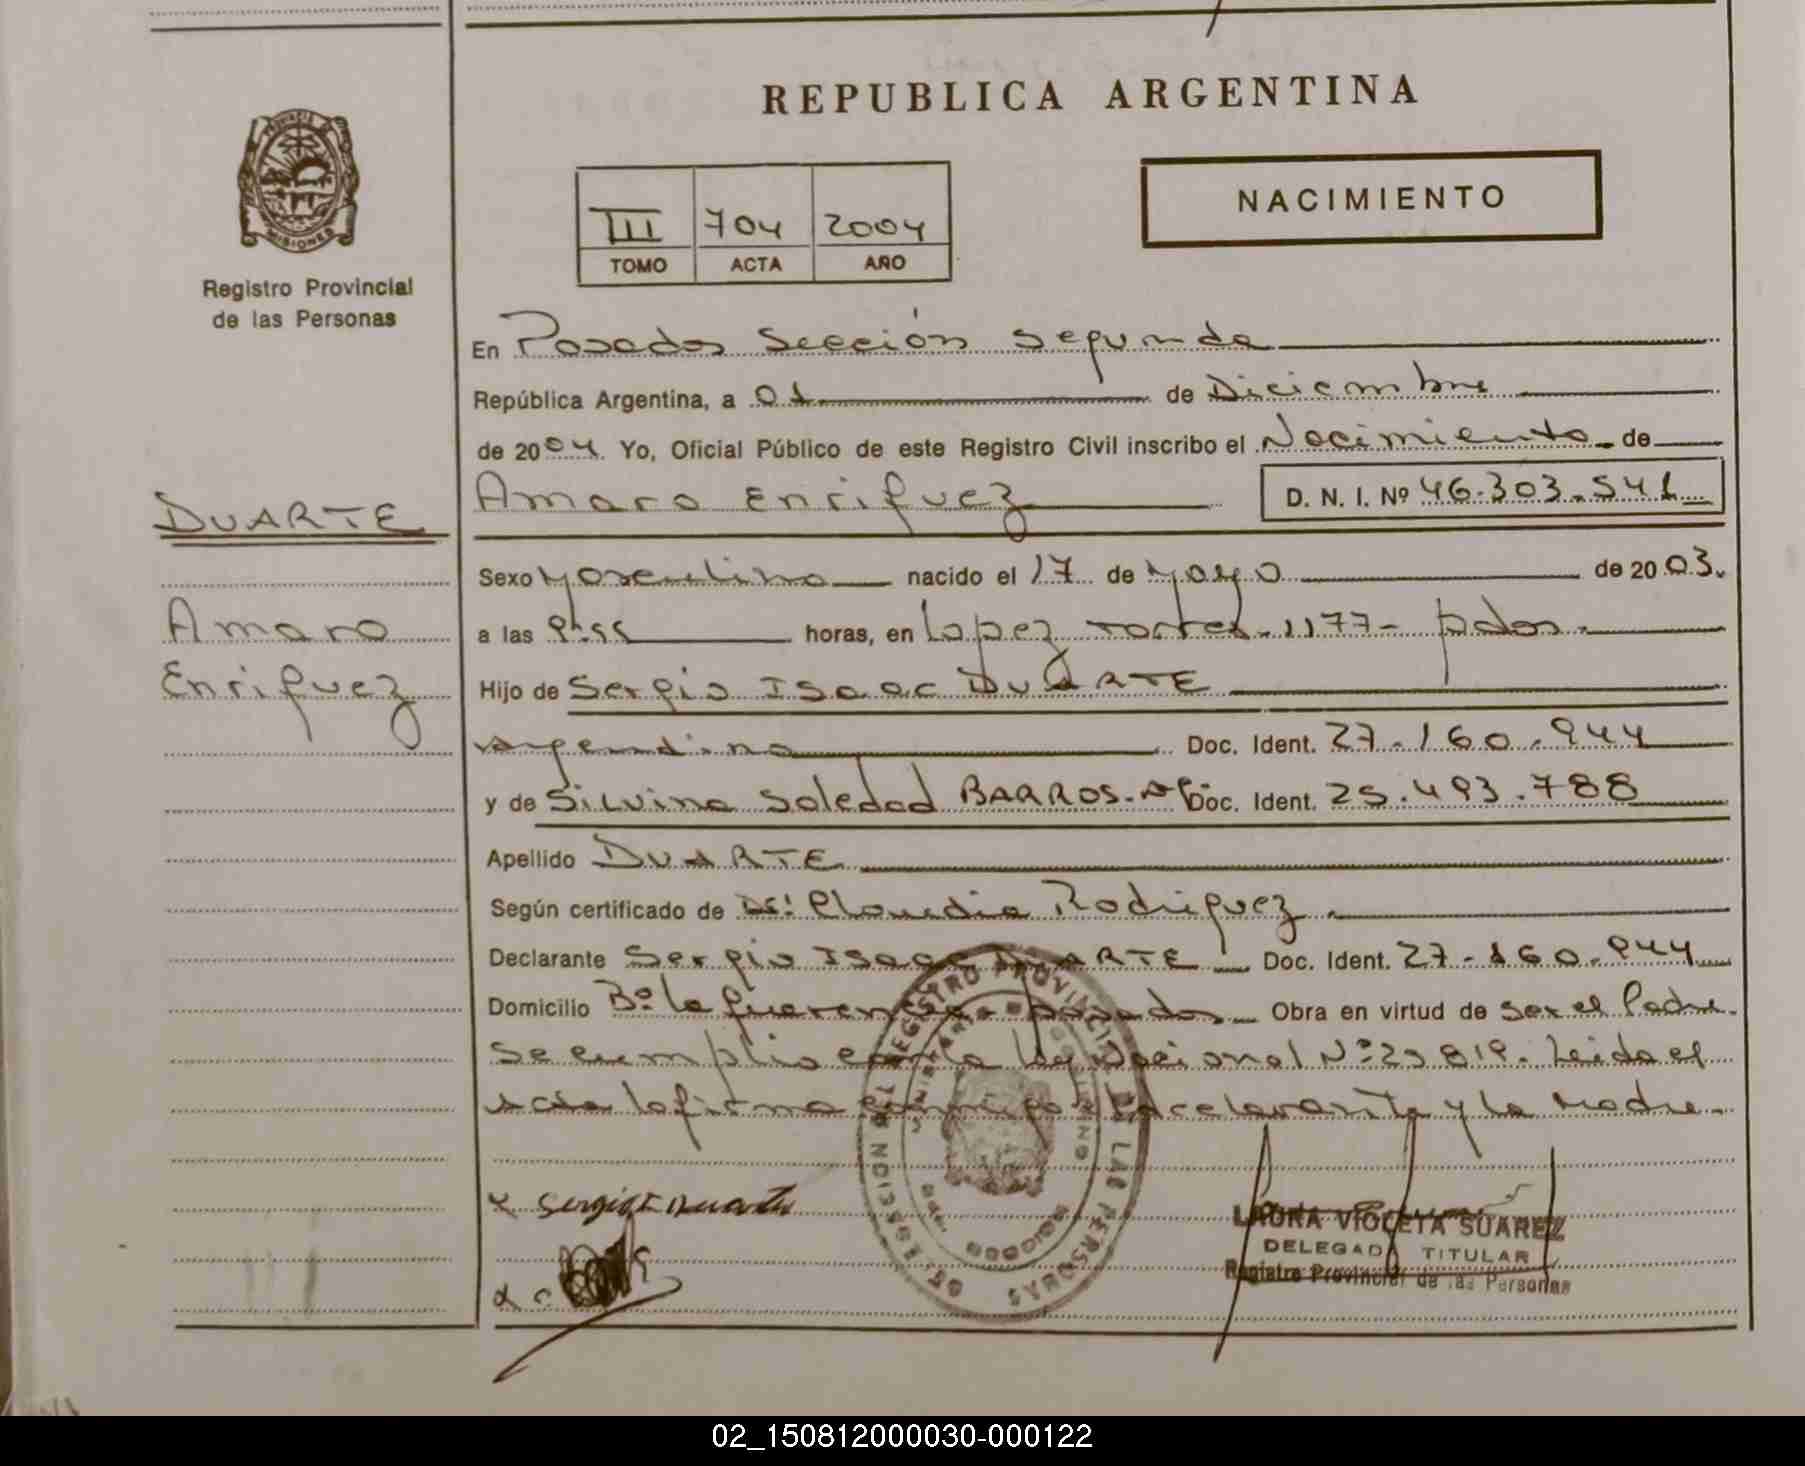 REPUBLICA ARGENTINA
NACIMIENTO
III 704 2004
TOMO ACTA AÑO
PROVINCIA DE MISIONES
Registro Provincial
de las Personas
DUARTE
Amaro
Enriquez
En Posadas Sección Segunda
República Argentina, a 01 de Diciembre
de 2004 Yo, Oficial Público de este Registro Civil inscribo el Nacimiento de
Amaro Enriquez D. N. I. Nº 46.303.541
Sexo Masculino nacido el 17 de Mayo de 2003.
a las horas, en Lopez Torres-1177- pdas.
Hijo de Sergio Isaac DUARTE
argentino Doc. Ident. 27.160.944
y de Silvina Soledad BARROS- Doc. Ident. 25.493.788
Apellido DUARTE
Según certificado de Claudia Rodriguez.
Declarante Sergio Isaac DUARTE Doc. Ident. 27.160.944
Domicilio Bº la posadas Obra en virtud de ser el Padre.
Se cumplio con la ley Nacional Nº Leida el
acta la firma conmigo declarante y la Madre.
DELEGACION DEL REGISTRO PROVINCIAL DE LAS PERSONAS
LAURA VIOLETA SUAREZ
DELEGADA TITULAR
Registro Provincial de las Personas
02_150812000030-000122